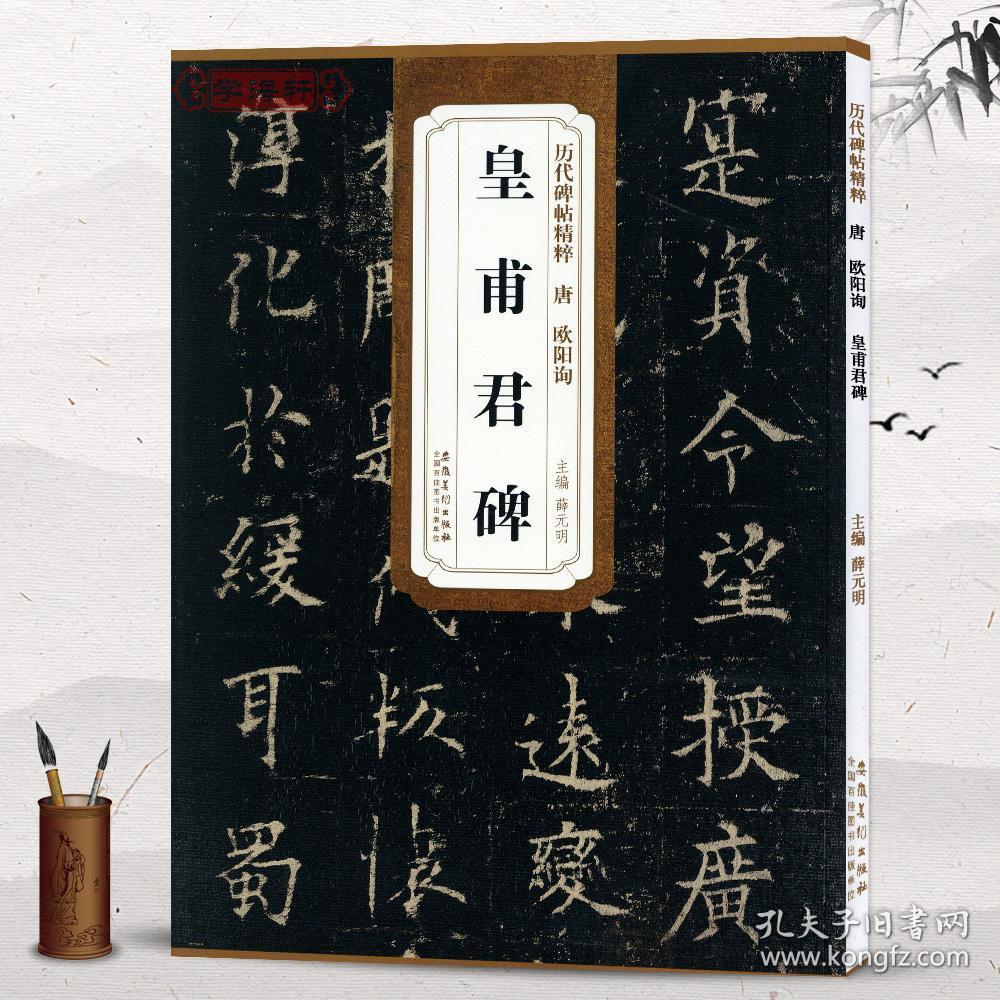 学海轩
历代碑帖精粹 唐 欧阳询
皇甫君碑
主编 薛元明
安徽美术出版社
全国百佳图书出版单位
寔資令望授廣
遠變
懷
淳化於緩耳蜀
历代碑帖精粹 唐 欧阳询 皇甫君碑 主编 薛元明
安徽美术出版社
全国百佳图书出版单位
孔夫子旧书网
www.kongfz.com